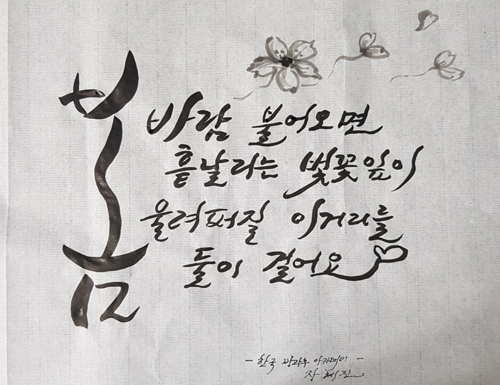 봄
바람 불어오면
흩날리는 벚꽃잎이
울려퍼질 이거리를
둘이 걸어요
- 한국 방과후 아카데미 -
장세진